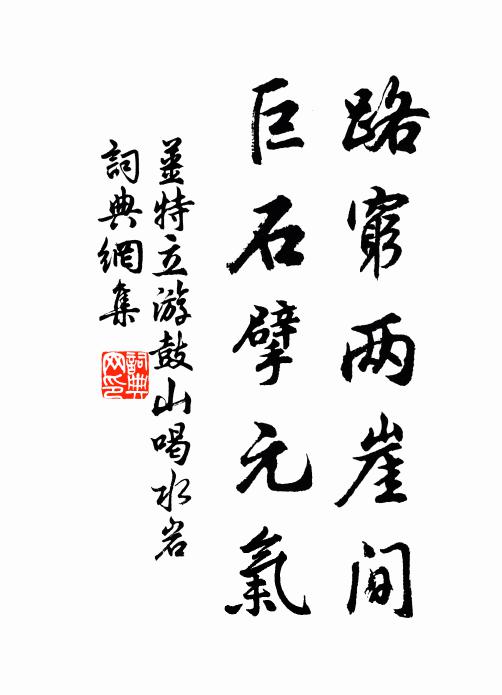 路穷两崖间
巨石擘元氣
薑特立游鼓山喝水岩
詞典網集
詞典
网印